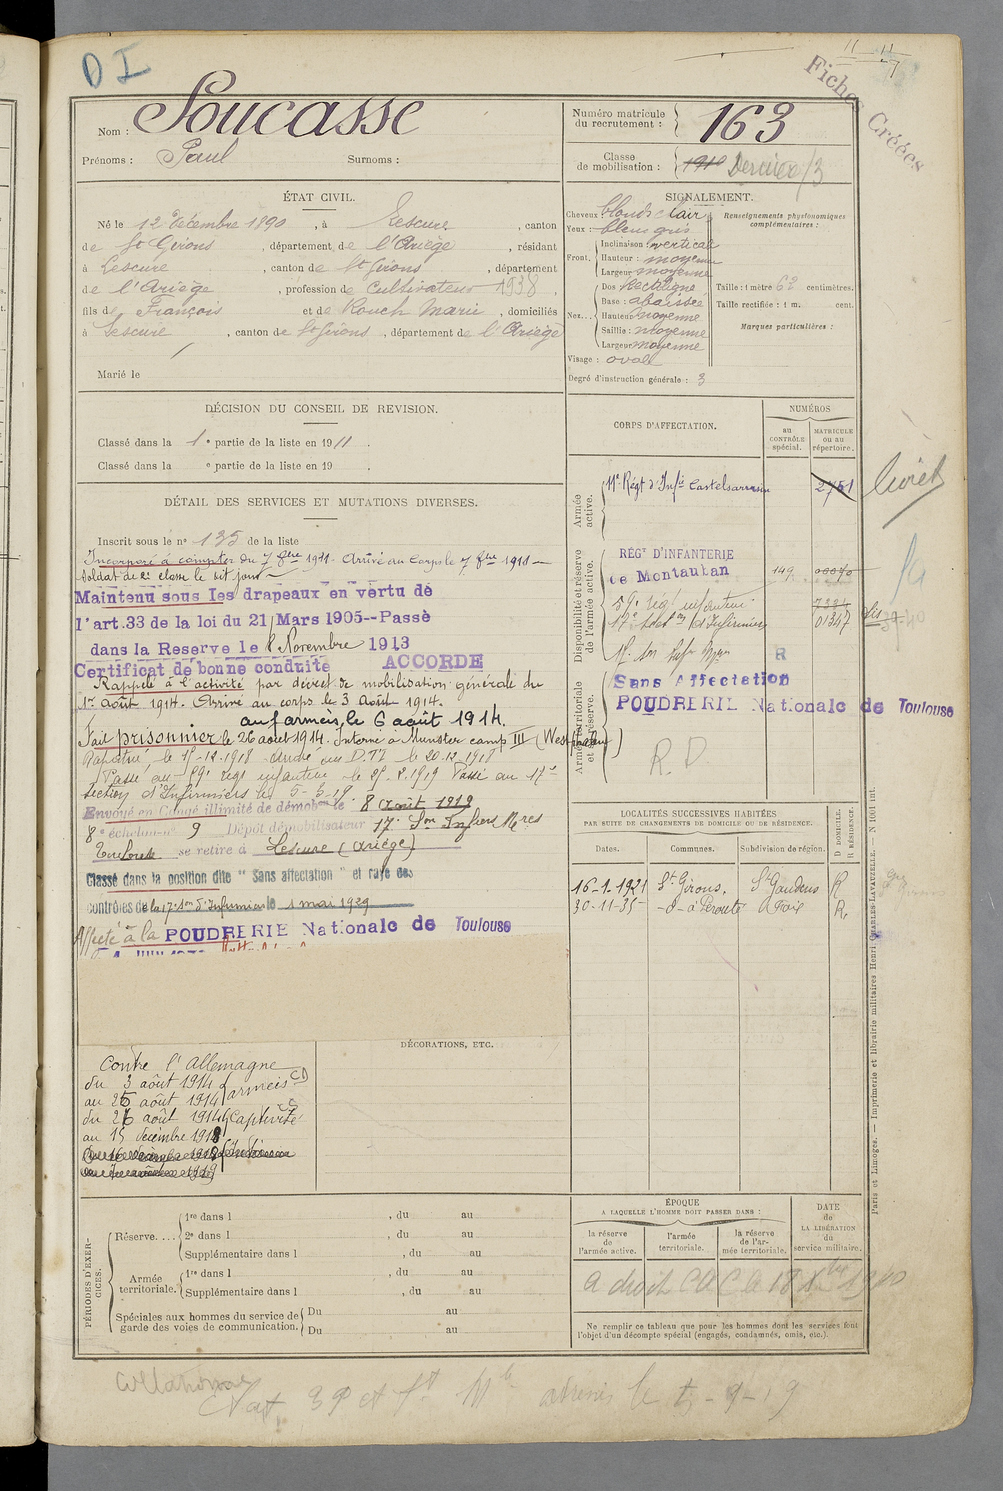 D I
Fiches Créées
Nom : Soucasse
Prénoms : Paul Surnoms :
Numéro matricule du recrutement : 163
Classe de mobilisation : 1910 Dernière/3
ÉTAT CIVIL.
Né le 12 Décembre 1890, à Lescure, canton
de St Girons, département de l'Ariège, résidant
à Lescure, canton de St Girons, département
de l'Ariège, profession de Cultivateur 1938,
fils de François et de Rouch Marie, domiciliés
à Lescure, canton de St Girons, département de l'Ariège
Marié le
SIGNALEMENT.
Cheveux blonds clair
Yeux : bleus gris
Front. Inclinaison : verticale
Hauteur : moyenne
Largeur moyenne
Nez... Dos Rectiligne
Base : abaissée
Hauteur moyenne
Saillie : moyenne
Largeur moyenne
Visage : ovale
Degré d'instruction générale : 3
Renseignements physionomiques complémentaires :
Taille : 1 mètre 62 centimètres.
Taille rectifiée : 1 m. cent.
Marques particulières :
DÉCISION DU CONSEIL DE REVISION.
Classé dans la 1e partie de la liste en 1911.
Classé dans la e partie de la liste en 19 .
DÉTAIL DES SERVICES ET MUTATIONS DIVERSES.
Inscrit sous le no 135 de la liste
Incorporé à compter du 7 8bre 1911. Arrivé au Corps le 7 8bre 1911
Soldat de 2e classe le dit jour
Maintenu sous les drapeaux en vertu de
l'art.33 de la loi du 21 Mars 1905--Passé
dans la Reserve le 8 Novembre 1913
Certificat de bonne conduite ACCORDÉ
Rappelé à l'activité par décret de mobilisation générale du
1er août 1914. Arrivé au corps le 3 Août 1914.
aux armées, le 6 août 1914.
Fait prisonnier le 26 août 1914. Interné à Munster camp III (Westphalie)
Rapatrié le 15-12-1918
section d'Infirmiers le 5-5-19.
Envoyé en Congé illimité de démobon le 8 août 1919
8e échelon no 9 Dépôt démobilisateur 17e Son Infiers Mres
Toulouse se retire à Lescure (Ariège)
Classé dans la position dite "Sans affectation" et rayé des
contrôles de la 17e Son d'Infirmiers le 1 mai 1929
Affecté à la POUDRERIE Nationale de Toulouse
CORPS D'AFFECTATION.
NUMÉROS
au CONTRÔLE spécial.
MATRICULE ou au répertoire.
Armée active.
11e Régt d'Infie Castelsarrasin 2751
Disponibilité et réserve de l'armée active.
RÉGt D'INFANTERIE
de Montauban 149 00070
59e régt infanterie 7384
17e Section d'Infirmiers 01347
R
Armée territoriale et sa réserve.
Sans Affectation
POUDRERIE Nationale de Toulouse
R.D
livret
LOCALITÉS SUCCESSIVES HABITÉES
PAR SUITE DE CHANGEMENTS DE DOMICILE OU DE RÉSIDENCE.
Dates. Communes. Subdivision de région. D DOMICILE. R RÉSIDENCE.
16-1-1921 St Girons. St Gaudens R
30-11-35 -d- à Peroute à Foix R.
Contre l'Allemagne
du 3 août 1914
au 25 août 1914 armées CD
du 26 août 1914
au 15 décembre 1918 Captivité
DÉCORATIONS, ETC.
PÉRIODES D'EXERCICES.
Réserve.... 1re dans l , du au
2e dans l , du au
Supplémentaire dans l , du au
Armée territoriale. 1re dans l , du au
Supplémentaire dans l , du au
Spéciales aux hommes du service de garde des voies de communication. Du au
Du au
ÉPOQUE
A LAQUELLE L'HOMME DOIT PASSER DANS :
la réserve de l'armée active.
l'armée territoriale.
la réserve de l'armée territoriale.
DATE de LA LIBÉRATION du service militaire.
a droit CAC le 18 Xbre 1940
Ne remplir ce tableau que pour les hommes dont les services font
l'objet d'un décompte spécial (engagés, condamnés, omis, etc.).
Paris et Limoges. — Imprimerie et librairie militaires Henri CHARLES-LAVAUZELLE. — N 1601 int.